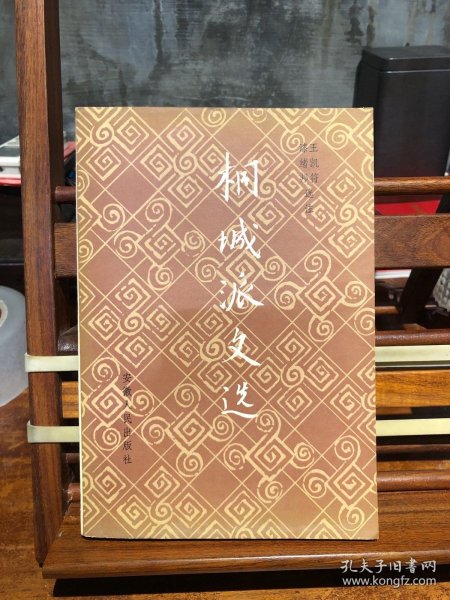 王凯符
漆绪邦选注
桐城派文选
安徽人民出版社
孔夫子旧书网
www.kongfz.com